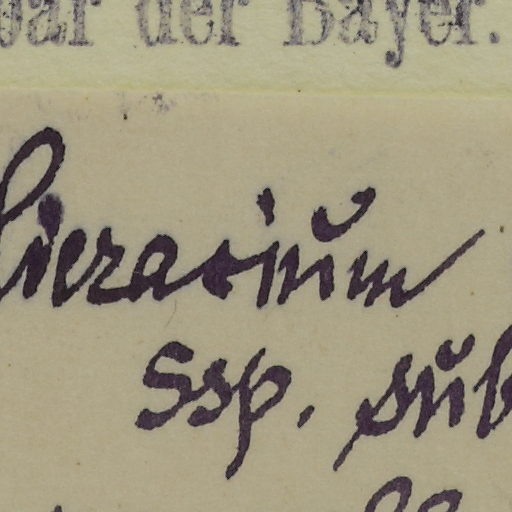 bar der Bayer.
Hieracium
ssp. sub